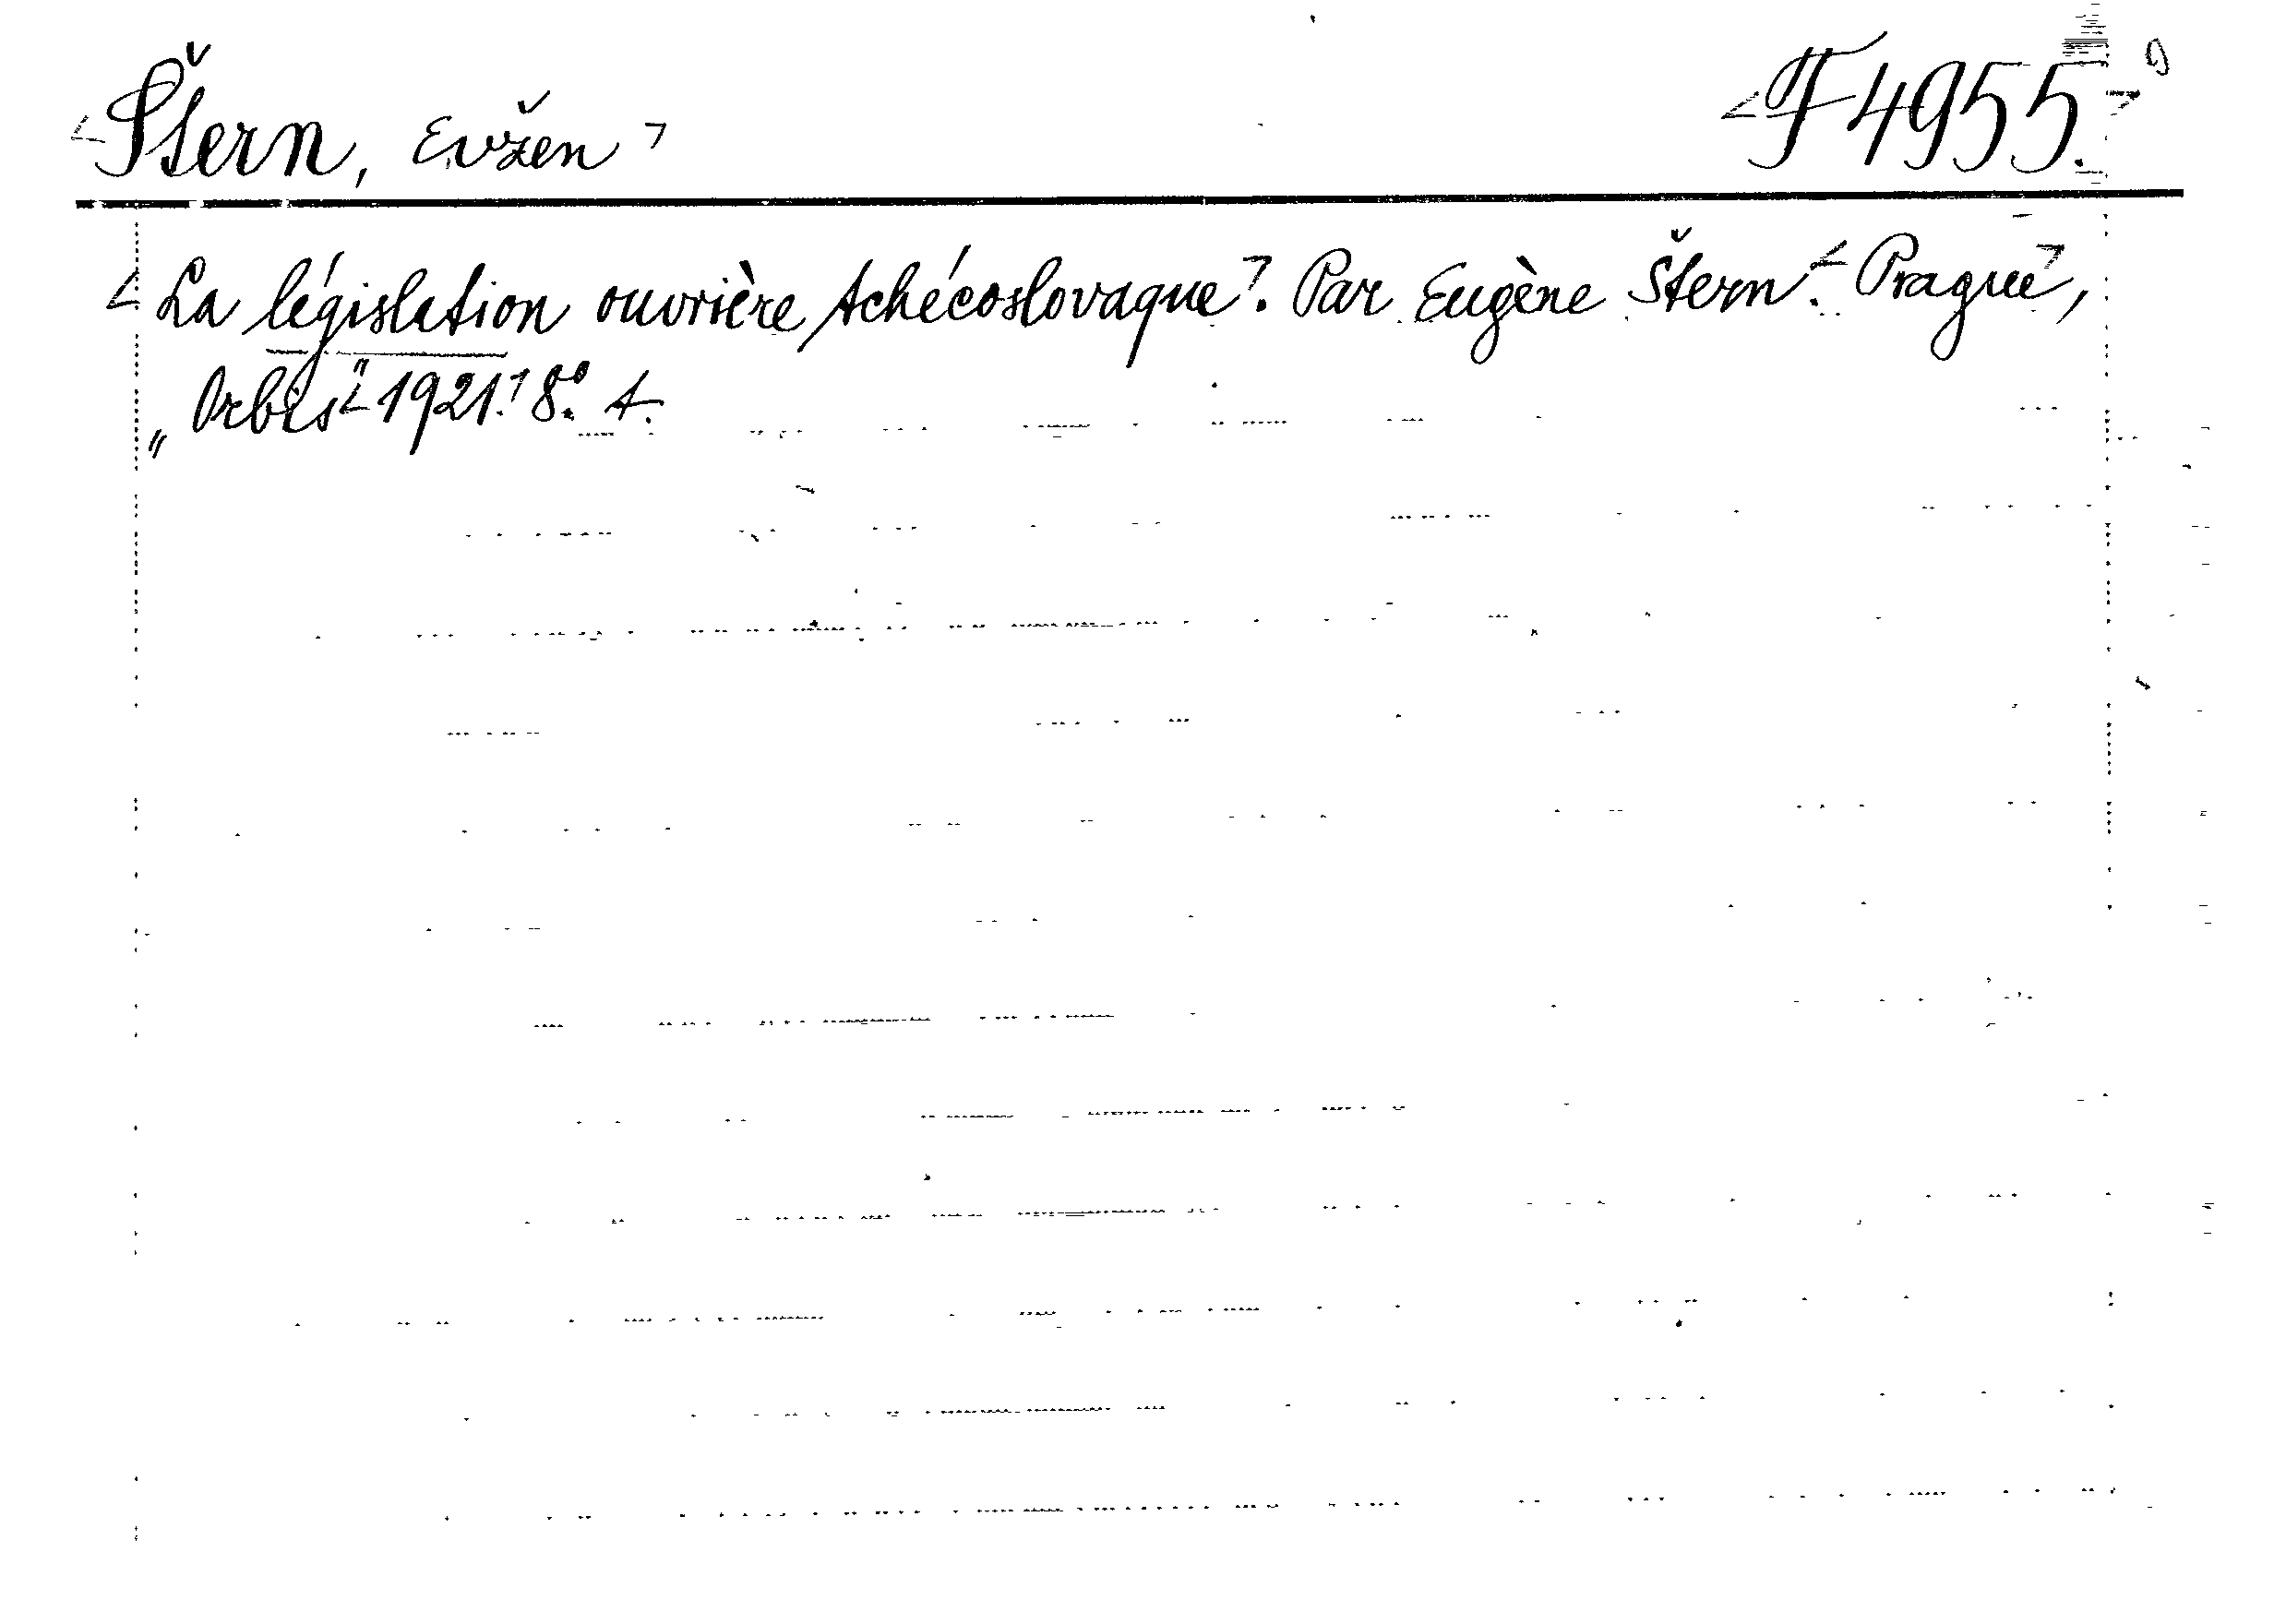 <Štern, Evžen> <F 4955.>
<La législation ouvrière tchécoslovaque>. Par Eugène Štern. <Prague>,
„Orbis“ <1921.> 8.°